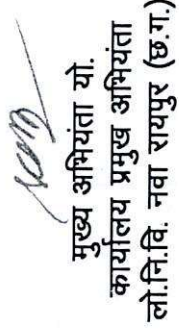 मुख्य अभियंता यो.
कार्यालय प्रमुख अभियंता
लो.नि.वि. नवा रायपुर (छ.ग.)